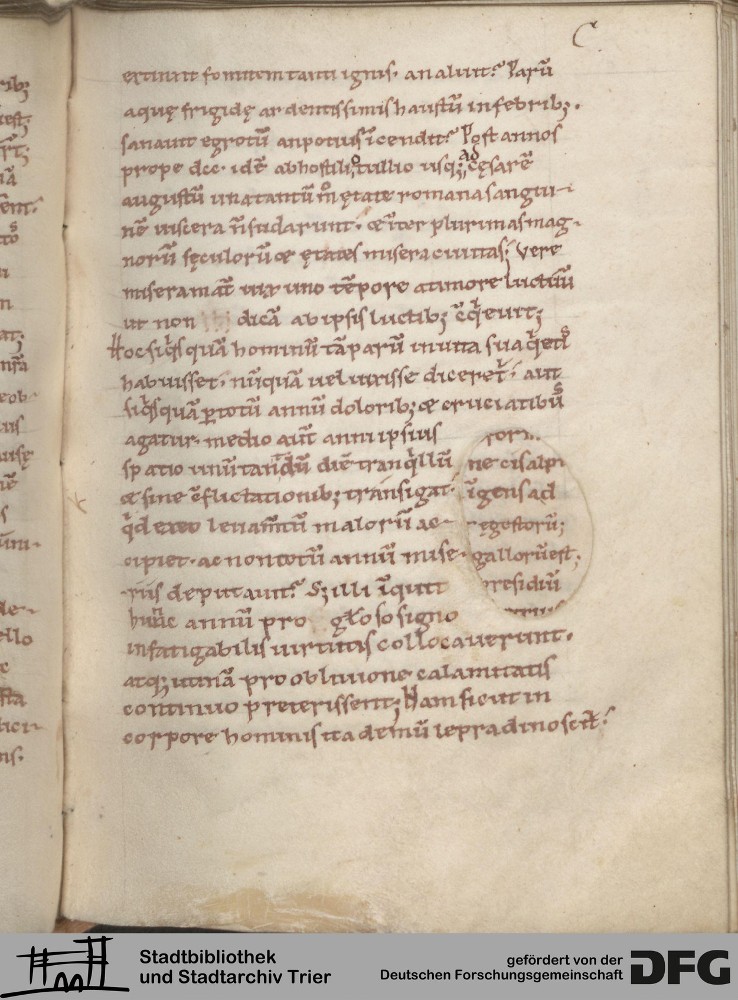 C
extinxit fomitem tanti ignis. an aluit? Parū
aquę frigidę ardentissimis haustū in febrib;.
sanauit egrotū an potius īcendit? Post annos
prope dcc. idē ab hostilio tullio usq; ad cęsarē
augustū una tantū m̊ ętate romana sangui-
nē uiscera ñ sudarunt. & īter plurimas mag-
norū sęculorū & ętates misera ciuitas; Vere
misera uix uno tēpore a timore luctuū
ut non dicā ab ipsis luctib; cq̄euit;
Hoc siq̇s quā hominū tā parū in uita sua q̇etis
habuisset. nūquā uel uixisse diceret̄. aut
siq̇squā p totū annū dolorib; & cruciatibus
agatur. medio aut̄ anni ipsius
spatio unū tandū diē tranq̇llū
& sine cflictationib; transigat.
q̇d ex eo leuam̄tū malorū ac-
cipiet. ac non totū annū mise-
rius deputauit? S; illi īquit
hunc annū pro gloso signo
infatigabilis uirtutis collocauerunt.
atq; utinā pro obliuione calamitatis
continuo preterissent; Nam sicut in
corpore hominis ita demū lepra dinoscit̄.
ne cisalpi
īgens ad
ręgestorū;
gallorū est;
presidiū
Stadtbibliothek
und Stadtarchiv Trier
gefördert von der
Deutschen Forschungsgemeinschaft
DFG